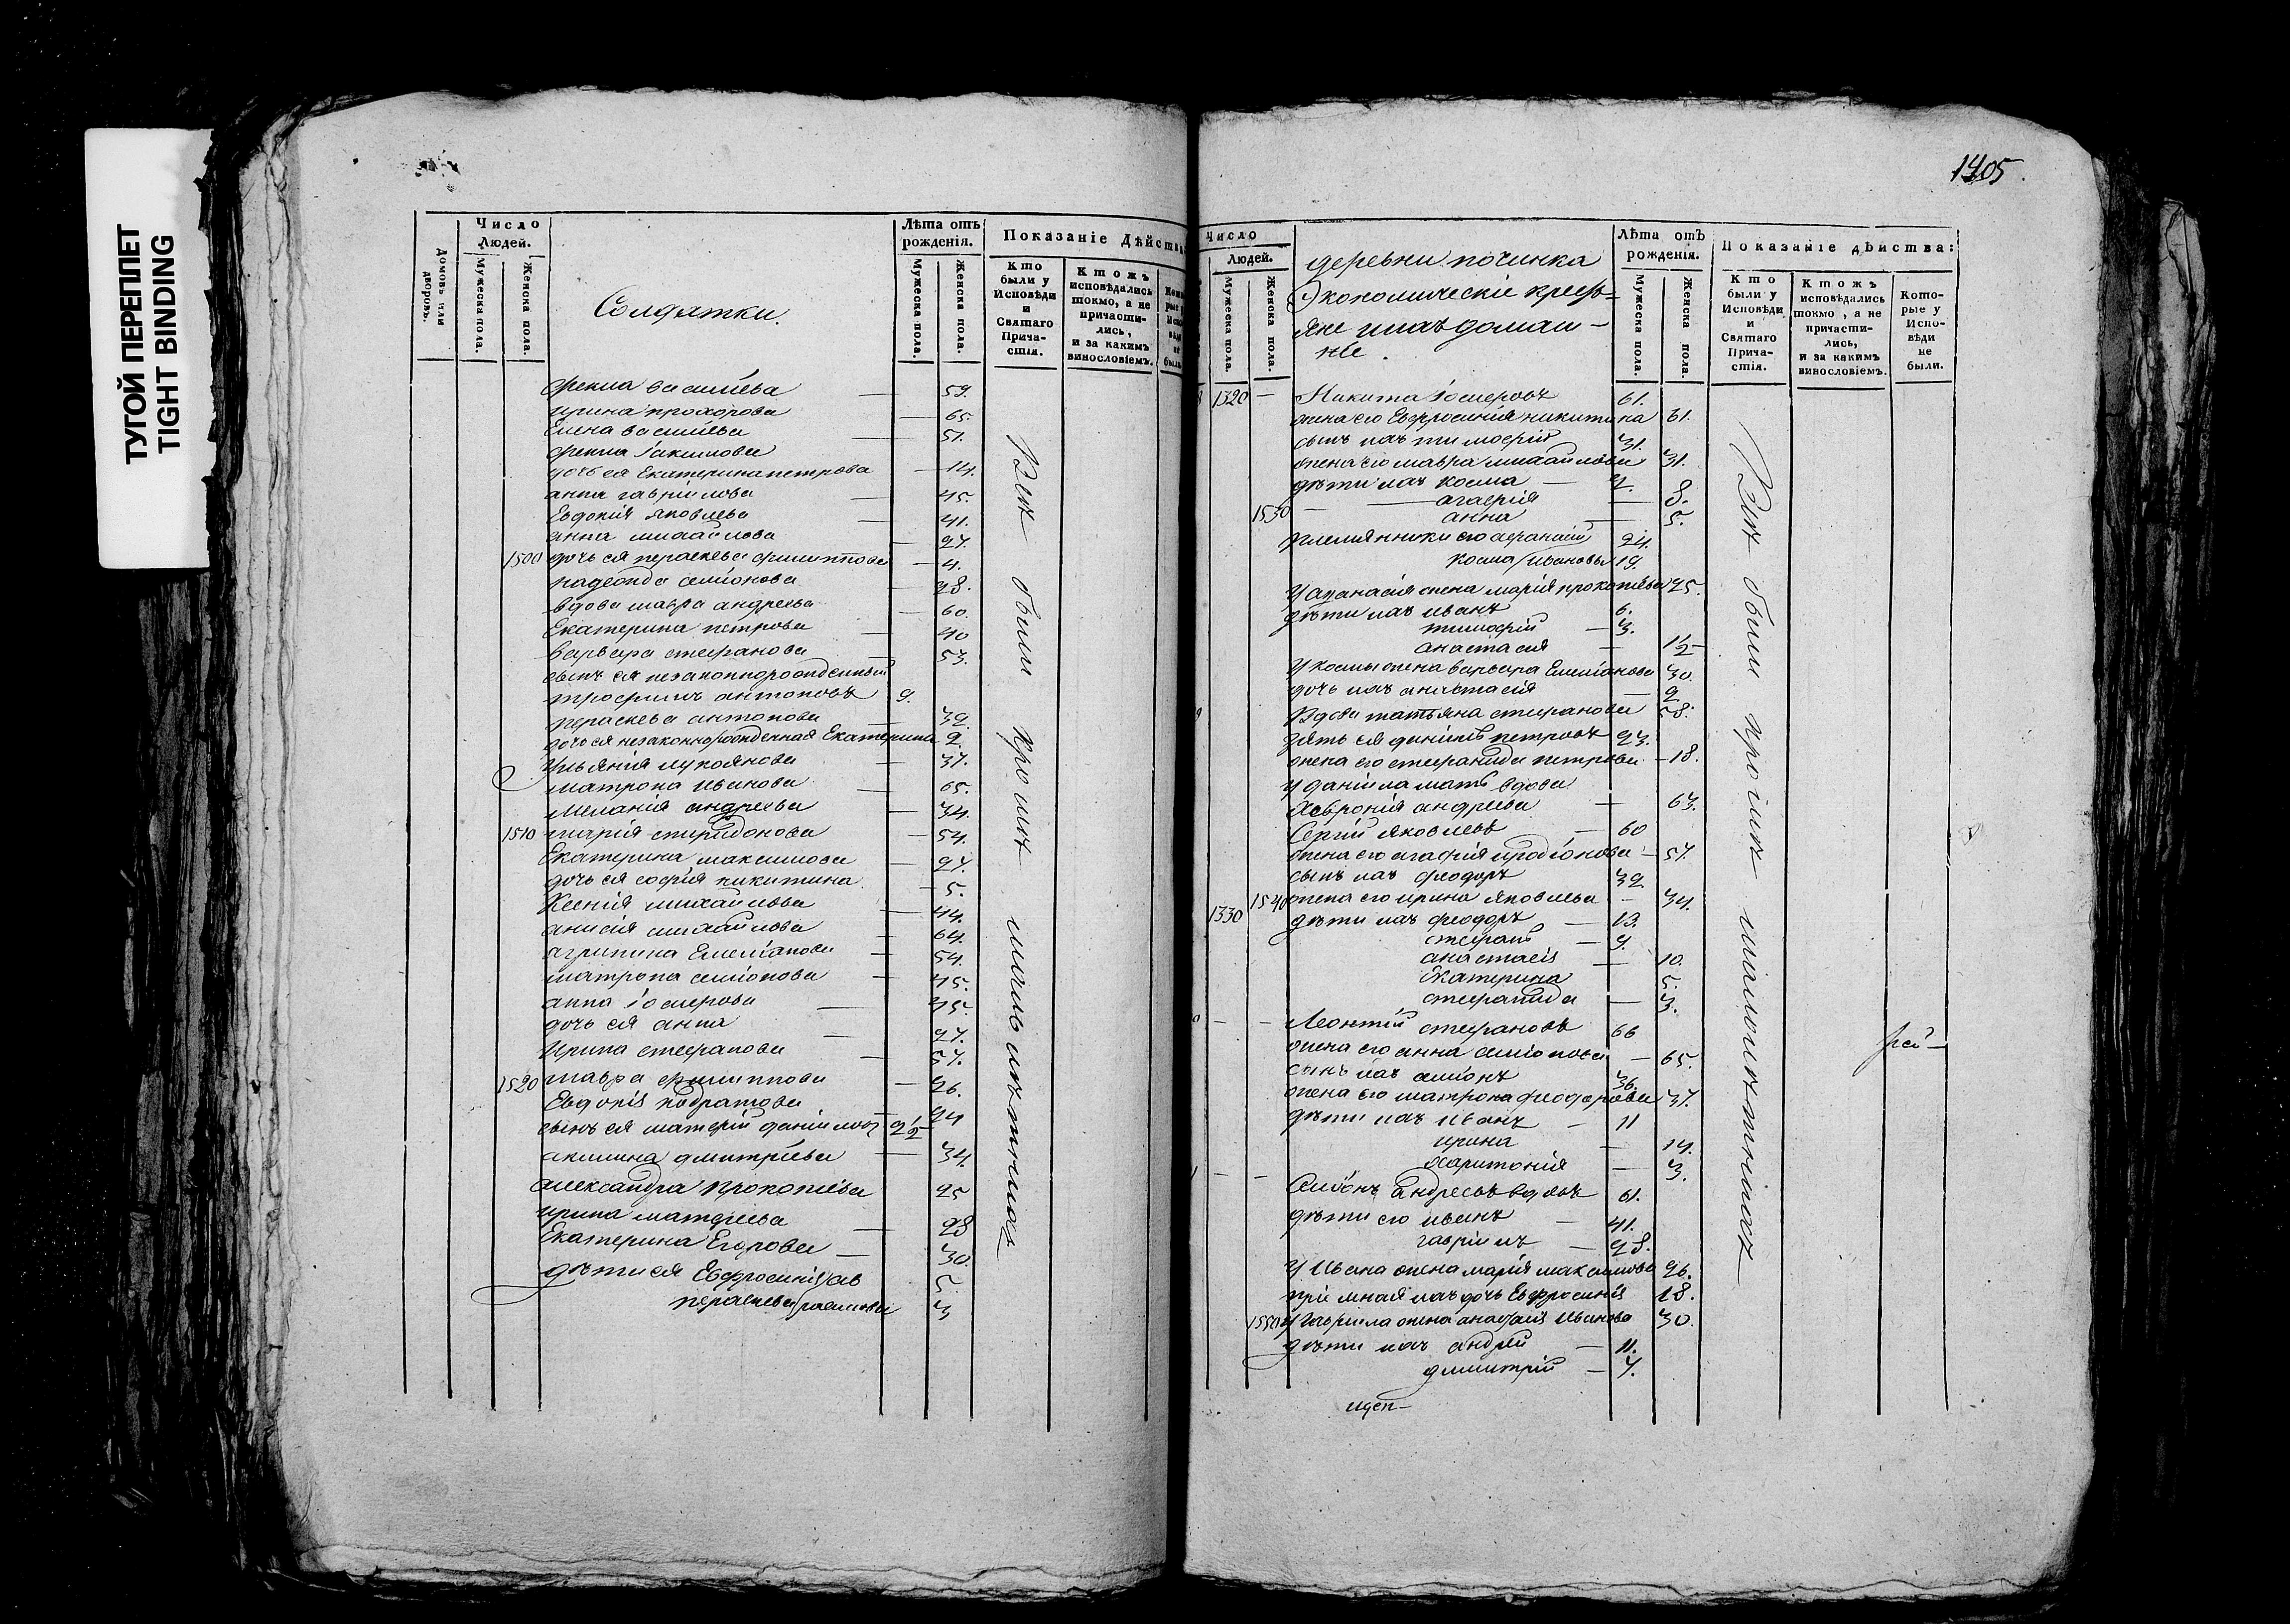 ТУГОЙ ПЕРЕПЛЕТ
TIGHT BINDING
Домовъ или дворовъ.
Число Людей.
Мужеска пола.
Женска пола.
Солдатки.
Лѣта отъ рожденія.
Мужеска пола.
Женска пола.
Показаніе Дѣйства
Кто были у Исповѣди и Святаго Прича-стія.
Ктожъ исповѣдались токмо, а не причасти-лись, и за какимъ винословіемъ.
фекла васильева — 59.
ирина прохорова — 65.
Елена васильева — 51.
фекла Іакимова
дочь ея Екатерина петрова — 14.
анна гавріилова — 45.
Евдокия Яковлева — 41.
анна михаилова — 27.
1500 дочь ея параскева филиппова — 4.
надежда симіонова — 28.
вдова мавра андреева — 60.
Екатерина петрова — 40
варвара стефанова — 53.
сынъ ея незаконнорожденный
трофимъ антоновъ 9.
параскева антонова — 32.
дочь ея незаконнорожденная Екатерина 2.
Ульянія лукоянова — 37.
матрона Иванова — 65.
Меланія андреева — 34.
1510 марія спиридонова — 54.
Екатерина максимова — 27.
дочь ея софія никитина — 5.
Ксенія михаилова — 44.
анисія михаилова — 64.
агрипина Емеліанова — 54.
матрона симіонова — 45.
анна Іосифова — 45.
дочь ея анна — 27.
Ирина стефанова — 57.
1520 мавра филиппова — 26.
Евдокія кодратова — 24
сынъ ея матфій даніиловъ 2 1/2
акилина дмитріева — 34.
александра прокопіева 25
ирина матфеева — 28
Екатерина Егорова — 30.
дѣти ея Евфросинія 5.
параскева 3
Всѣ были кромѣ малолѣтныхъ
1405
Число Людей.
Мужеска пола.
Женска пола.
деревни починка
Экономическіе кресть=
яне и ихъ домаш-
ніе.
Лѣта отъ рожденія.
Мужеска пола.
Женска пола.
Показаніе дѣйства:
Кто были у Исповѣди и Святаго Прича-стія.
Ктожъ исповѣдались токмо, а не причасти-лись, и за какимъ винословіемъ.
Кото-рые у Испо-вѣди не были.
1320 — Никита Іосифовъ 61.
жена его Евфросинія никитина 61.
сынъ ихъ тимофій 31.
жена его мавра михаилова 31.
дѣти ихъ косма —
агафія — 8.
1530 — анна — 5.
племянники его афанасій 24.
косма Ивановы 19.
У афанасія жена марія прокопіева 25.
дѣти ихъ иванъ 6.
тимофій — 3.
анастасія — 1 1/2
У космы жена варвара Емеліанова 30.
дочь ихъ анастасія — 2
Вдова татьяна стефанова 58.
зять ея даніилъ петровъ 23.
жена его стефанида петрова — 18.
у даніила мать вдова
Хевронія андреева — 63.
Сергій Яковлевъ — 60
жена его агафія иродіонова — 57.
сынъ ихъ феодоръ 32
1540 жена его ирина Яковлева — 34.
1330 дѣти ихъ феодоръ — 13.
стефанъ — 9.
анастасія — 10.
Екатерина 5.
стефанида — 3.
Леонтій стефановъ 66
жена его анна симіонова — 65.
сынъ ихъ симіонъ 36.
жена его матрона феодорова 37.
дѣти ихъ Иванъ — 11
ирина — 14.
харитонія — 3.
Симіонъ андреевъ вдовъ 61.
дѣти его иванъ — 41.
гавріилъ — 28.
У Ивана жена марія максимова 26.
пріемная ихъ дочь Евфросинія 18.
1550 У Гавріила жена Иванова 30.
дѣти ихъ андрей — 11.
димитрій — 7.
Всѣ были кромѣ малолѣтныхъ